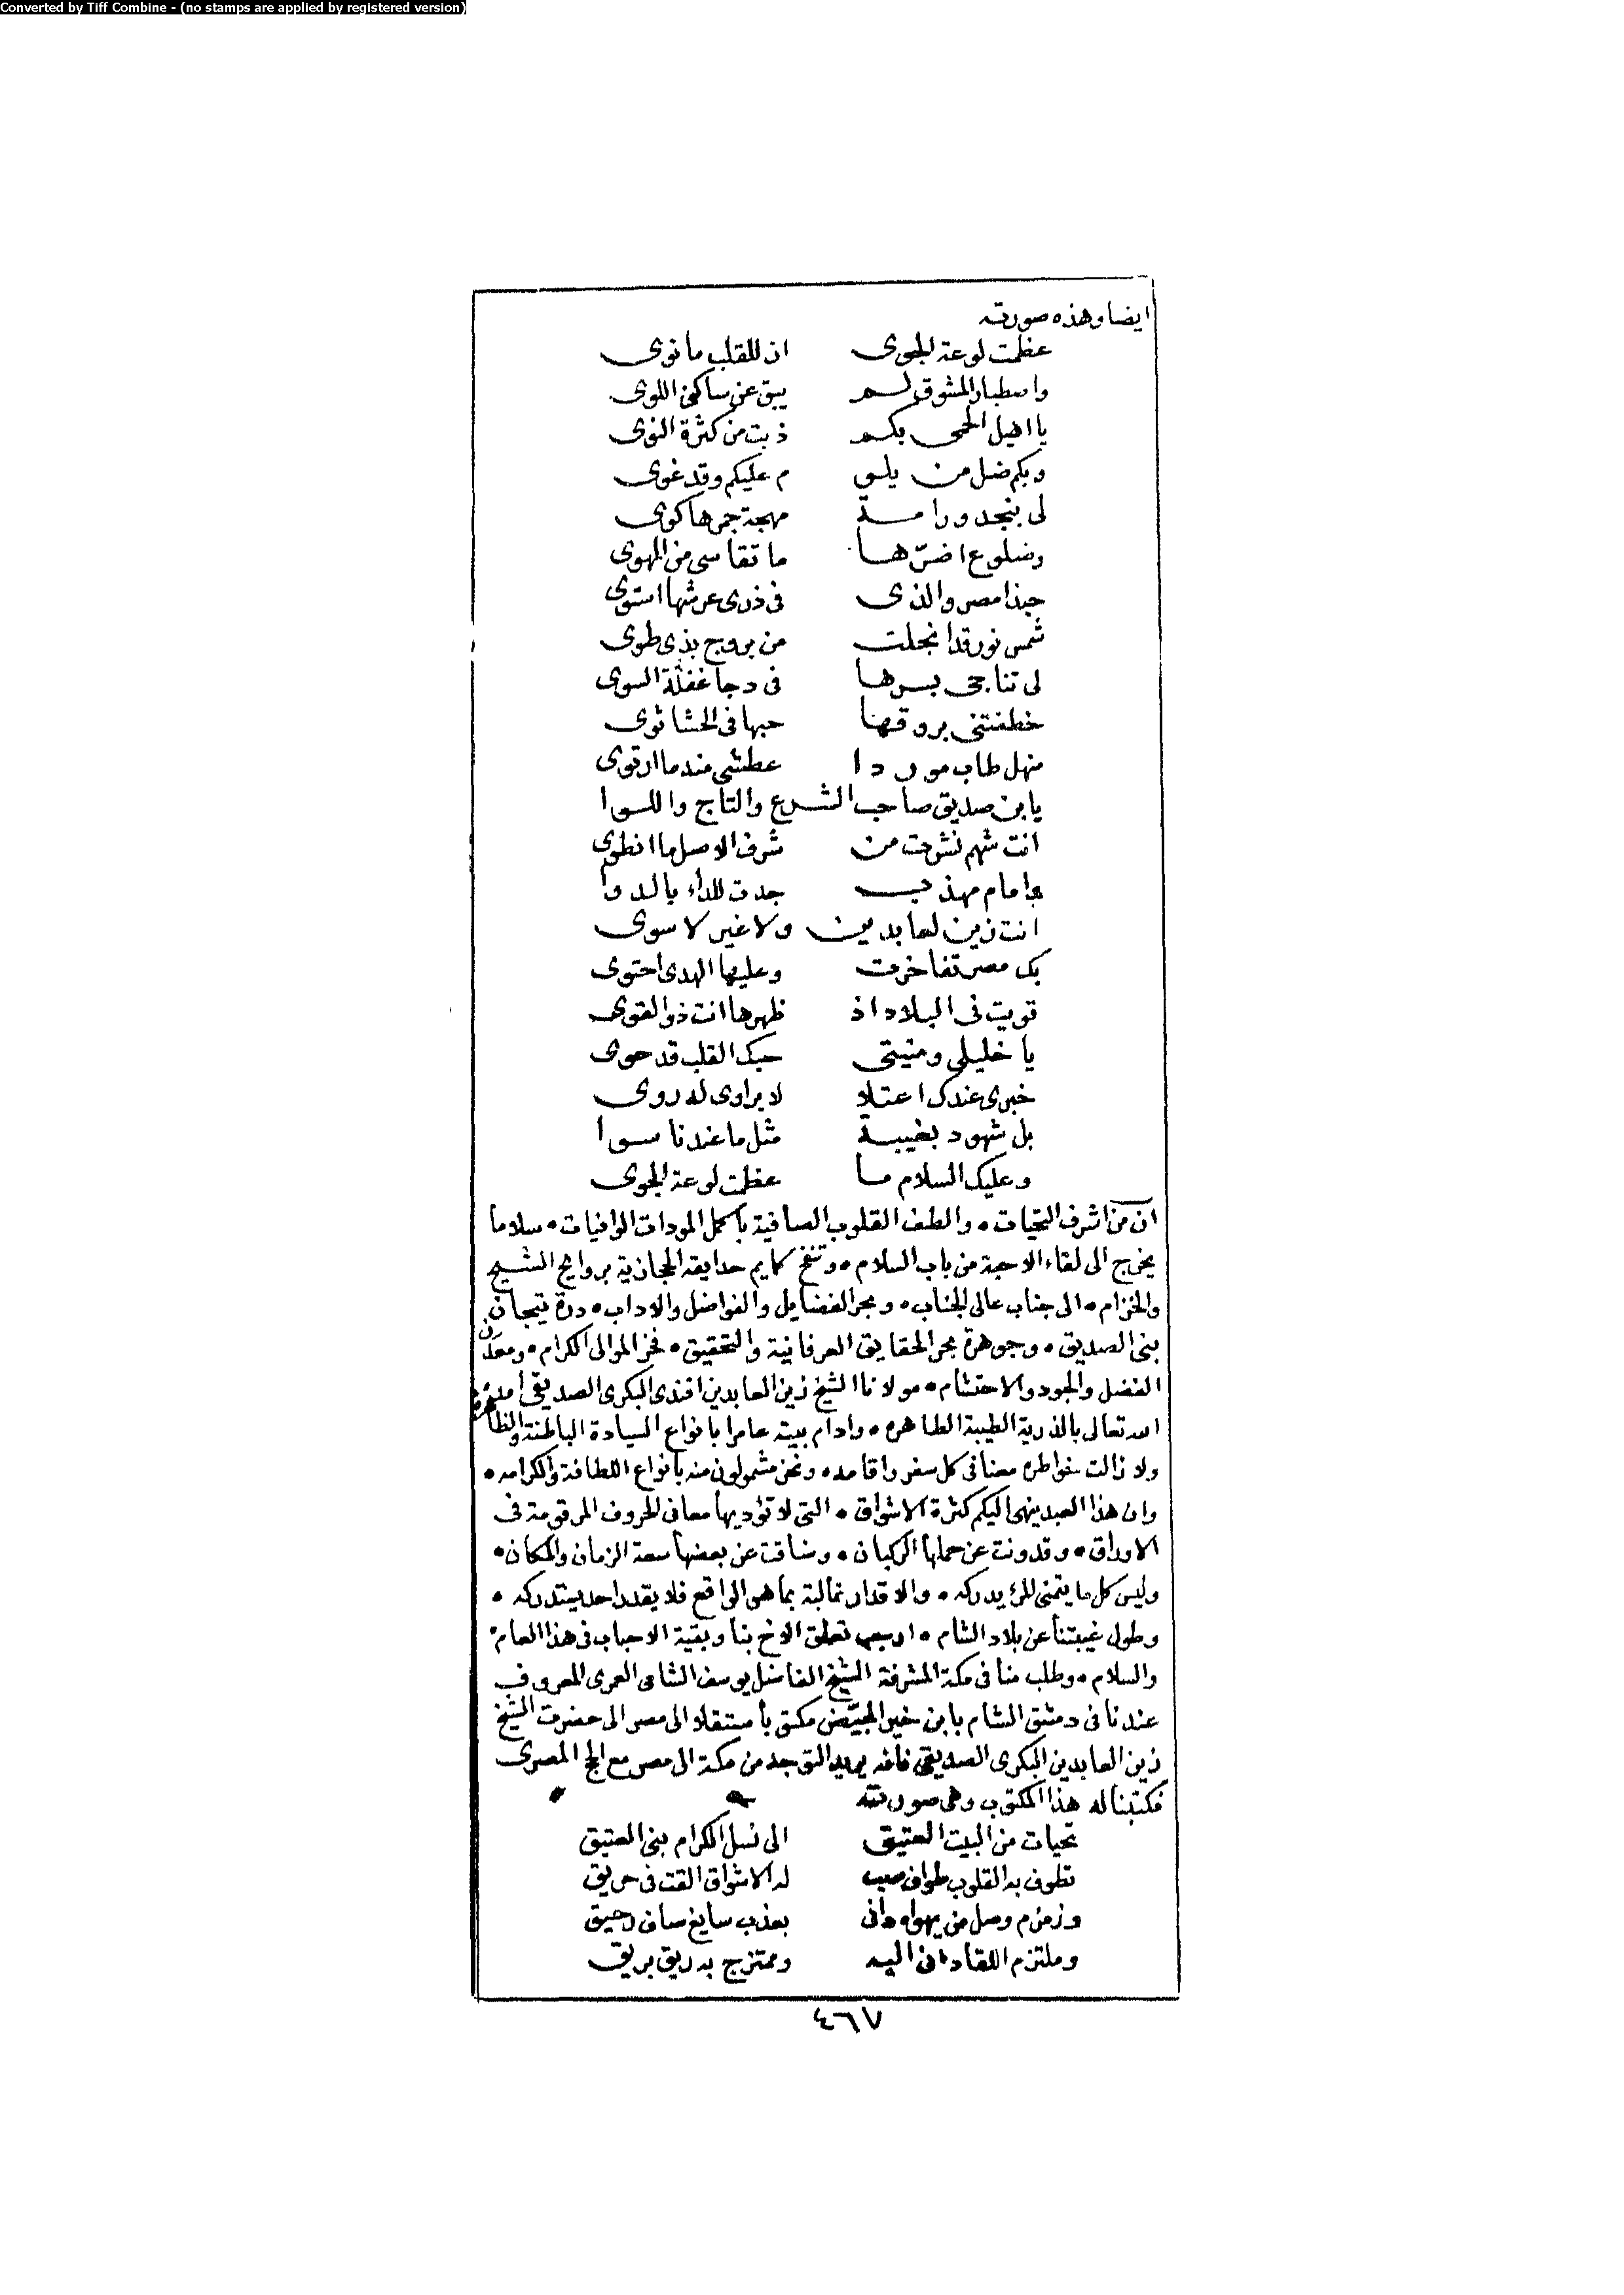 Converted by Tiff Combine - (no stamps are applied by registered version)
ايضا وهذه صورته
عظمت لوعة الجوى ان للقلب ما نوى
واصطبار المشوق لم يبق عن ساكن اللوى
يا اهيل الحمى بكم ذبت من كثرة النوى
وبكم ضل من يلو م عليكم وقد غوى
لى بنجد ورامة مهجة جمرها كوى
وضلوع اضرّها ما تقاسى من الهوى
حبذا مصر والذى فى ذرى عرشها استوى
شمس نور قد انجلت من بروج بذى طوى
لى تناجى بسرها فى دجا غفلة السوى
خطفتنى بروقها حبها فى الحشا ثوى
منهل طاب موردا عطشى منه ما ارتوى
يا بن صديق صاحب الشرع والتاج واللوا
انت شهم نشرت من شرف الاصل ما انطوى
يا امام مهذب جدت للداء بالدوا
انت زين لعابدين ولا غير لا سوى
بك مصر تفاخرت وعليها الهدى احتوى
قويت فى البلاد اذ ظهرها انت ذو القوى
يا خليلى ومنيتى حبك القلب قد حوى
خبرى عندك اعتلا لا براوى له روى
بل شهود بغيبة مثل ما عندنا سوا
وعليك السلام ما عظمت لوعة الجوى
ان من اشرف التحيات • والطف القلوب الصافية بأكمل المودات الوافيات • سلاما
يخرج الى لقاء الاحبة من باب السلام • وتنفخ كمايم حدايقه الحجازية بروايح الشيح
والخزام • الى جناب عالى الجناب • وبحر الفضايل والفواضل والاداب • درة تيجان
بنى الصديق • وجوهرة بحر الحقايق العرفانية والتحقيق • فخر الموالى الكرام • ومعدن
الفضل والجود والاحتشام • مولانا الشيخ زين العابدين افندى البكرى الصديقى امده
الله تعالى بالذرية الطيبة الطاهره • وادام بيته عامرا بانواع السيادة الباطنة والظاهرة
ولا زالت خواطره معنا فى كل سفر واقامه • ونحن مشمولون منه بأنواع اللطافة والكرامه •
وان هذا العبد ينهى اليكم كثرة الاشواق • التى لا تؤديها معانى الحروف المرقومة فى
الاوراق • وقد ونت عن حملها الركبان • وضاقت عن بعضها سعة الزمان والمكان •
وليس كل ما يتمنى المرء يدركه • والاقدار غالبة بما هو الواقع فلا يقدر احد يستدركه •
وطول غيبتنا عن بلاد الشام • اوجب تعلق الاخ بنا وبقية الاحباب فى هذا العام •
والسلام • وطلب منا فى مكة المشرفة الشيخ الفاضل يوسف الشامى العمرى المعروف
عندنا فى دمشق الشام بابن خير المبيّض مكتوبا ستقلا الى مصر الى حضرت الشيخ
زين العابدين البكرى الصديقى فانه يريد التوجه من مكة الى مصر مع الحج المصرى
فكتبنا له هذا المكتوب وهى صورته
تحيات من البيت العتيق الى نسل الكرام بنى العتيق
تطوف به القلوب طواف صب له الاشواق القت فى حريق
وزمزم وصل من يهواه دانى بعذب سايغ صاف رحيق
وملتزم اللقا دان اليه وممتزج به ريق بريق
٤٦٧